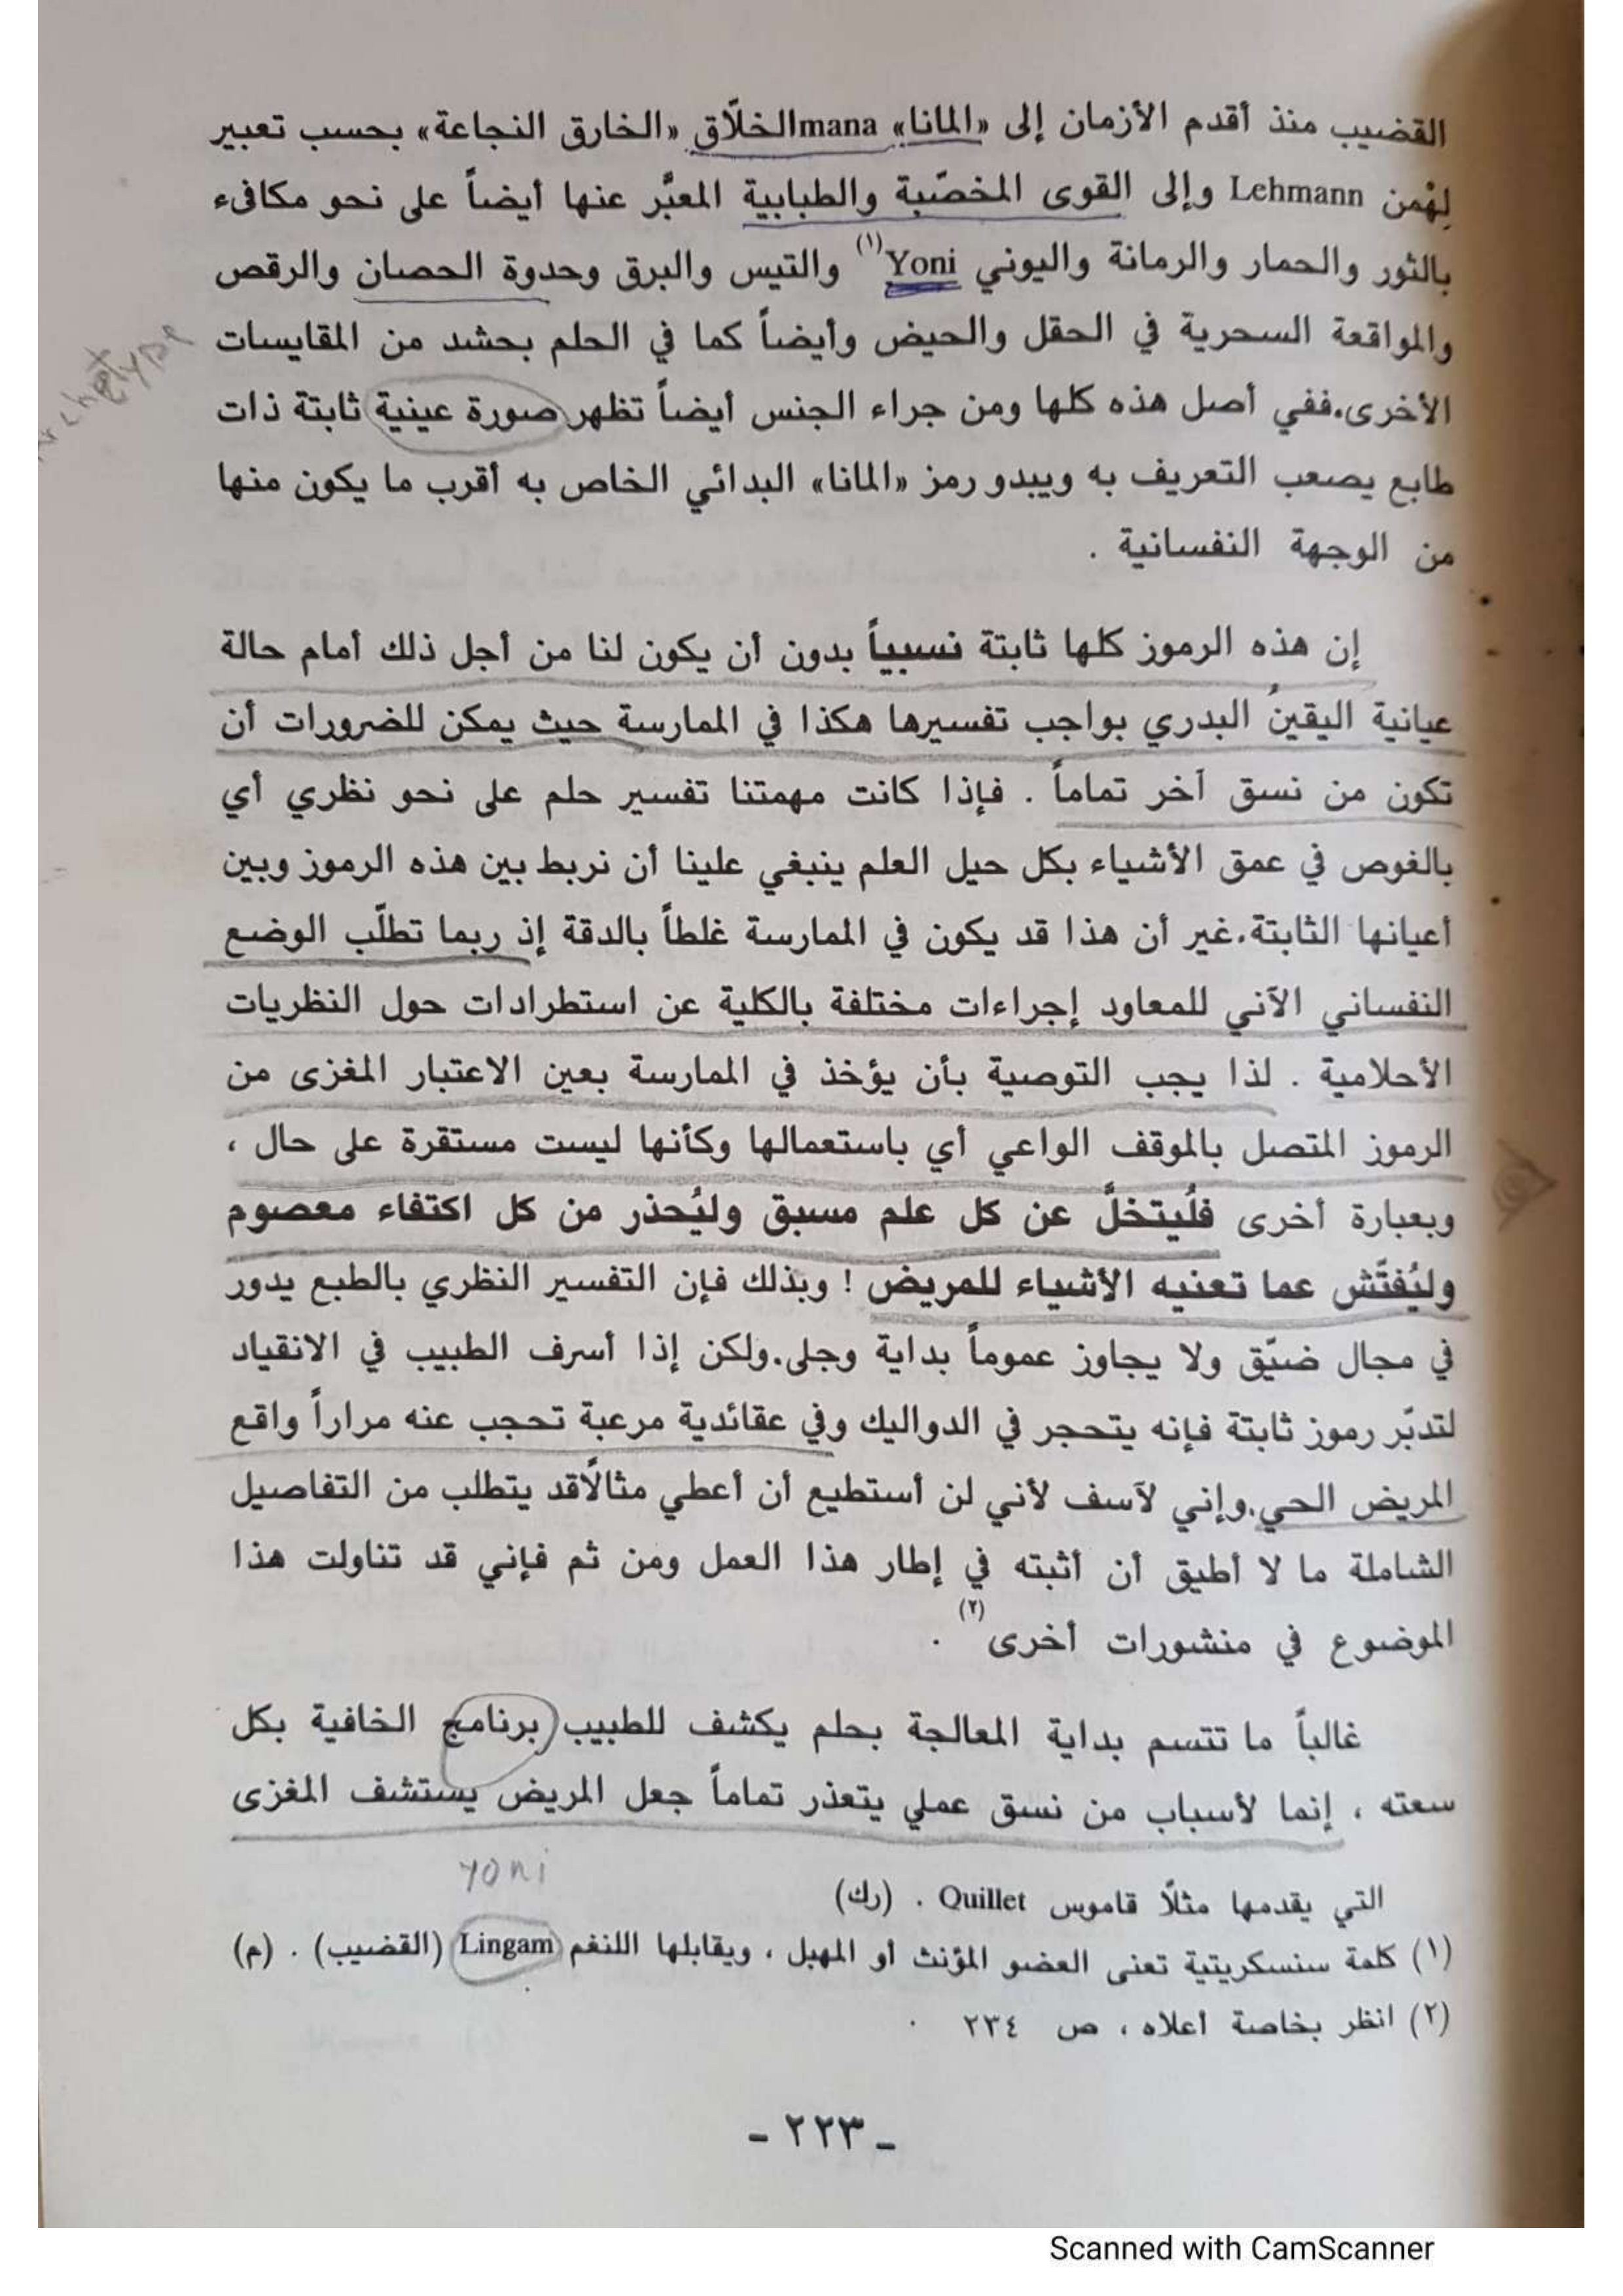 القضيب منذ أقدم الأزمان إلى «المانا» mana الخلّاق «الخارق النجاعة» بحسب تعبير
لِهْمن Lehmann وإلى القوى المخصّبة والطبابية المعبَّر عنها أيضاً على نحو مكافىء
بالثور والحمار والرمانة واليوني Yoni (١) والتيس والبرق وحدوة الحصان والرقص
والمواقعة السحرية في الحقل والحيض وأيضاً كما في الحلم بحشد من المقايسات
الأخرى.ففي أصل هذه كلها ومن جراء الجنس أيضاً تظهر صورة عينية ثابتة ذات
طابع يصعب التعريف به ويبدو رمز «المانا» البدائي الخاص به أقرب ما يكون منها
من الوجهة النفسانية .
إن هذه الرموز كلها ثابتة نسبياً بدون أن يكون لنا من أجل ذلك أمام حالة
عيانية اليقينُ البدري بواجب تفسيرها هكذا في الممارسة حيث يمكن للضرورات أن
تكون من نسق آخر تماماً . فإذا كانت مهمتنا تفسير حلم على نحو نظري أي
بالغوص في عمق الأشياء بكل حيل العلم ينبغي علينا أن نربط بين هذه الرموز وبين
أعيانها الثابتة.غير أن هذا قد يكون في الممارسة غلطاً بالدقة إذ ربما تطلّب الوضع
النفساني الآني للمعاود إجراءات مختلفة بالكلية عن استطرادات حول النظريات
الأحلامية . لذا يجب التوصية بأن يؤخذ في الممارسة بعين الاعتبار المغزى من
الرموز المتصل بالموقف الواعي أي باستعمالها وكأنها ليست مستقرة على حال ،
وبعبارة أخرى فلْيُتخلَّ عن كل علم مسبق وليُحذر من كل اكتفاء معصوم
وليُفتَّش عما تعنيه الأشياء للمريض ! وبذلك فإن التفسير النظري بالطبع يدور
في مجال ضيّق ولا يجاوز عموماً بداية وجلى.ولكن إذا أسرف الطبيب في الانقياد
لتدبّر رموز ثابتة فإنه يتحجر في الدواليك وفي عقائدية مرعبة تحجب عنه مراراً واقع
المريض الحي.وإني لآسف لأني لن أستطيع أن أعطي مثالًا قد يتطلب من التفاصيل
الشاملة ما لا أطيق أن أثبته في إطار هذا العمل ومن ثم فإني قد تناولت هذا
الموضوع في منشورات أخرى (٢) .
غالباً ما تتسم بداية المعالجة بحلم يكشف للطبيب برنامج الخافية بكل
سعته ، إنما لأسباب من نسق عملي يتعذر تماماً جعل المريض يستشف المغزى
yoni
التي يقدمها مثلًا قاموس Quillet . (رك)
(١) كلمة سنسكريتية تعنى العضو المؤنث أو المهبل ، ويقابلها اللنغم Lingam (القضيب) . (م)
(٢) انظر بخاصة أعلاه ، ص ٢٣٤ .
- ٢٢٣ -
Scanned with CamScanner